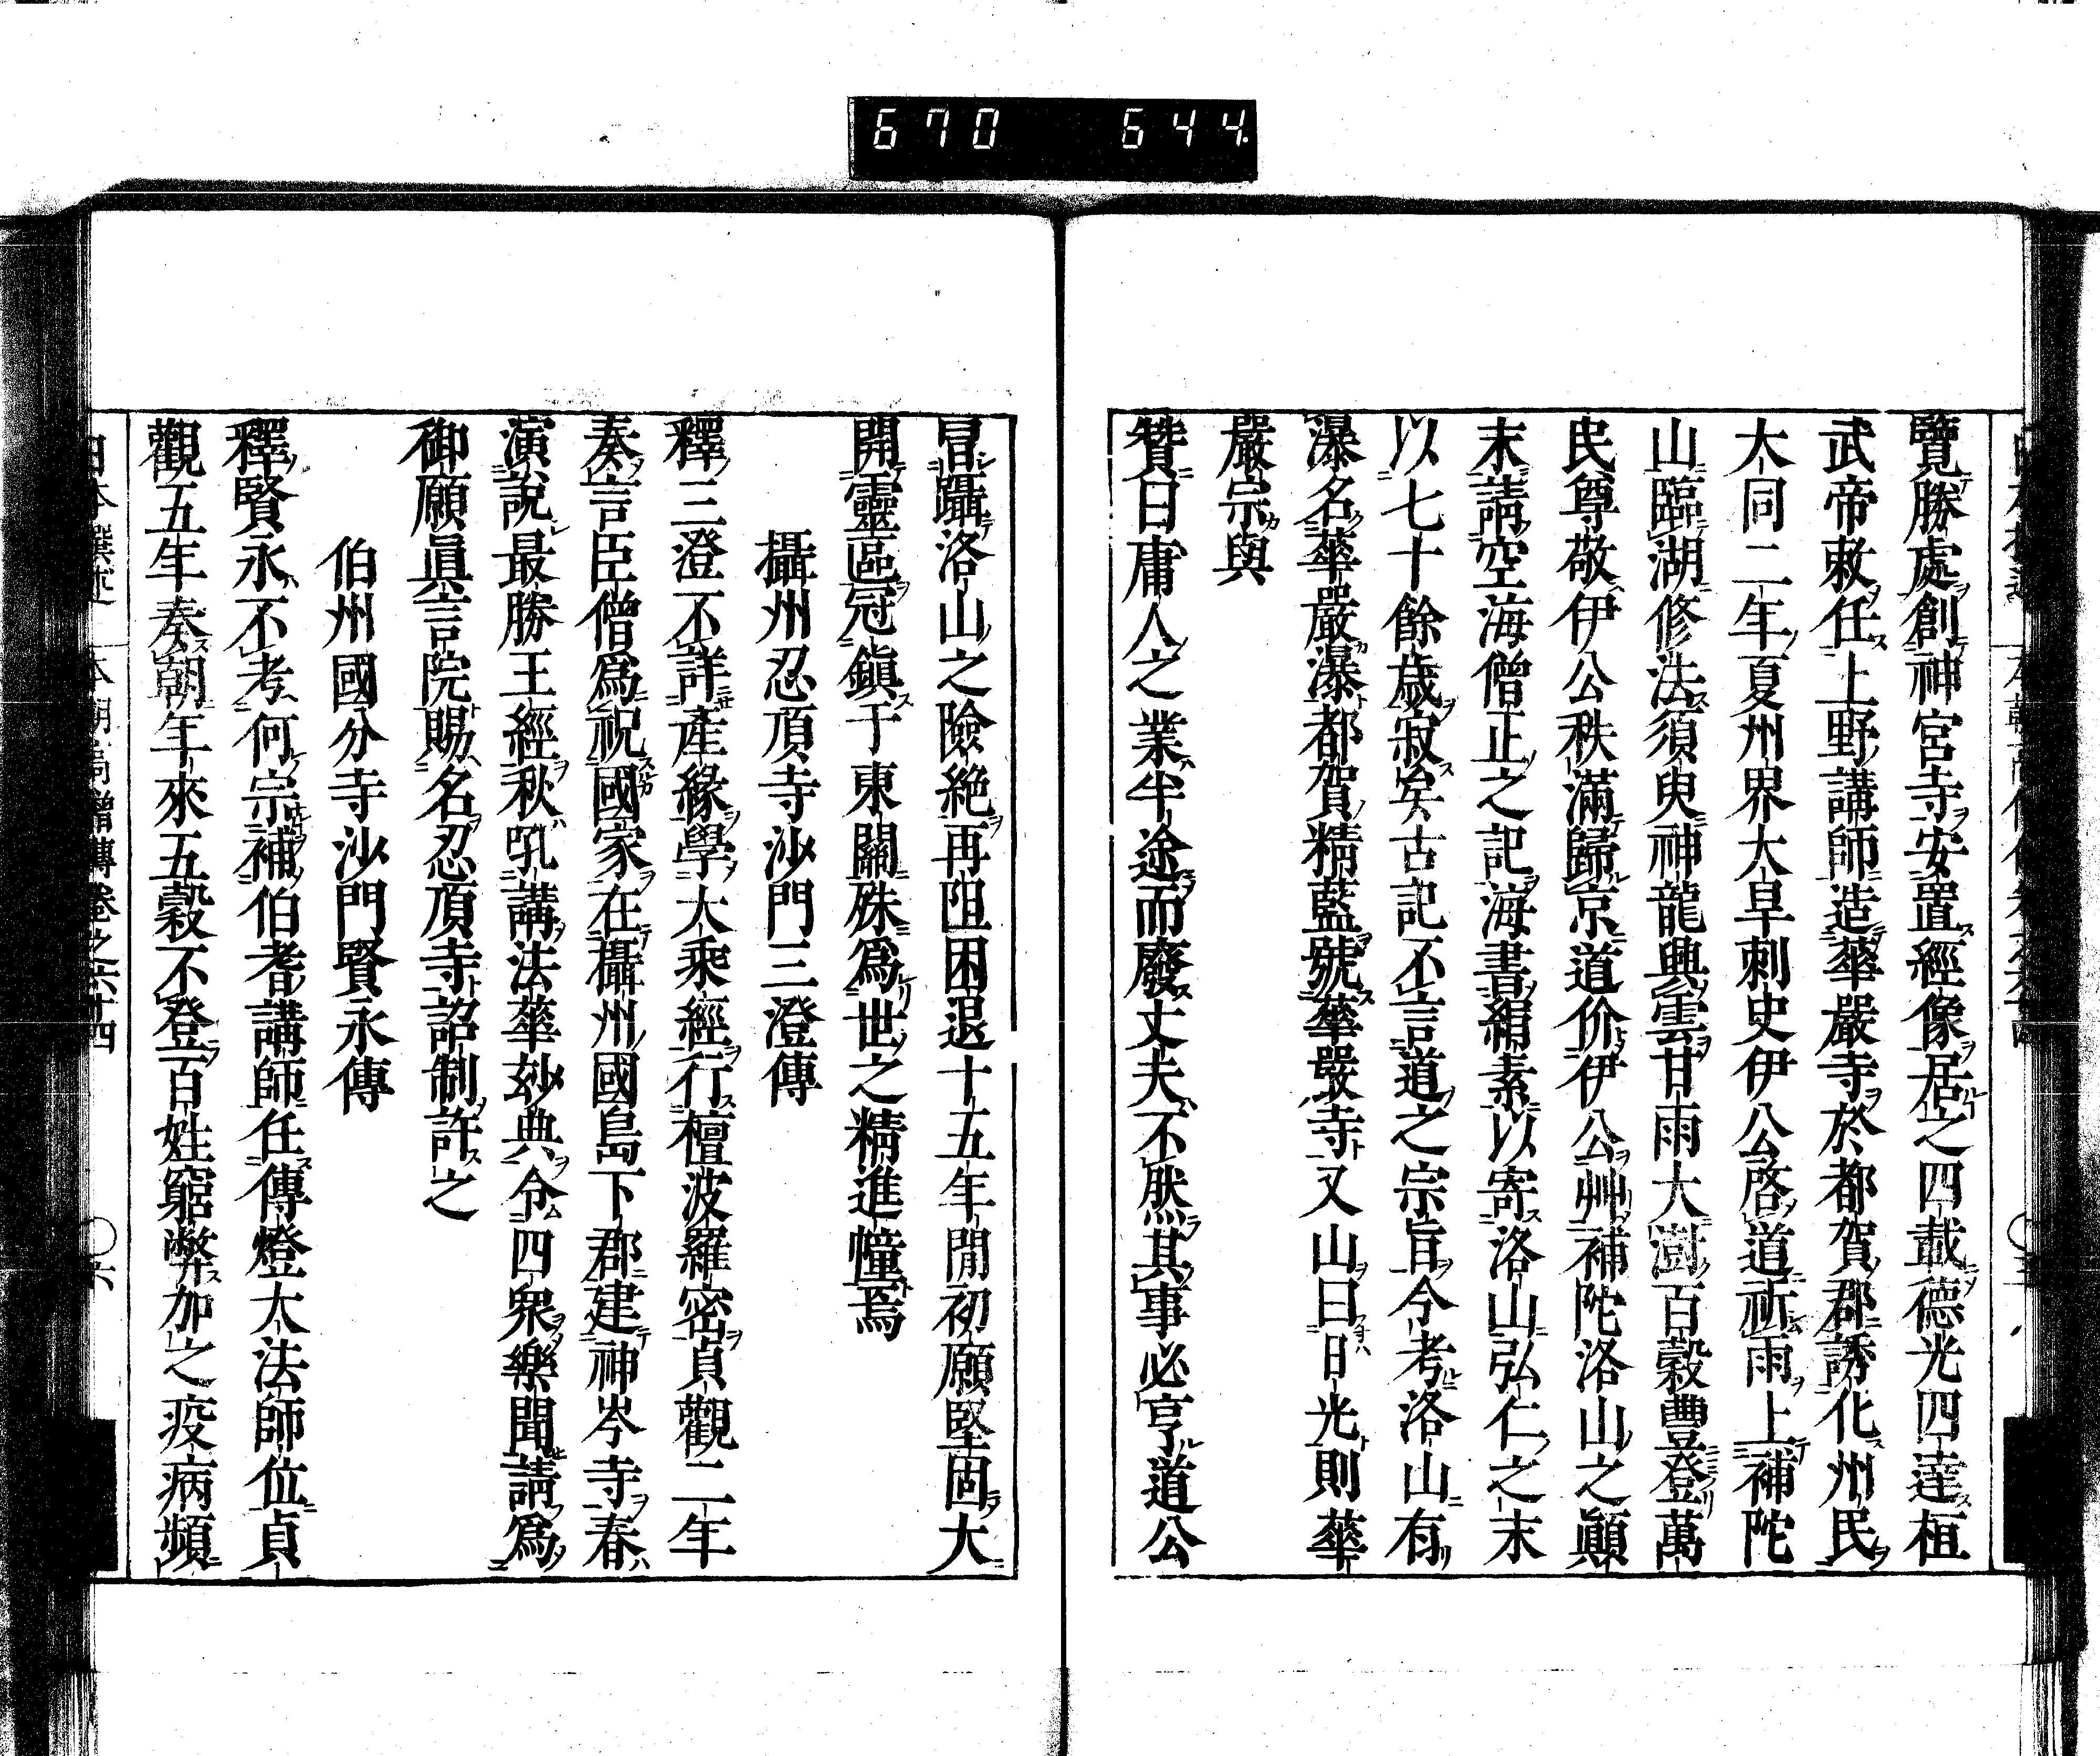 670 644
覽勝處創神宮寺安置經像居之四載德光四達桓
武帝敕任上野講師造華嚴寺於都賀郡誘化州民
大同二年夏州界大旱刺史伊公啓道祈雨上補陀
山臨湖修法須臾神龍興雲甘雨大澍百穀豐登萬
民尊敬伊公秩滿歸京道价伊公艸補陀洛山之顚
末請空海僧正之記海書絹素以寄洛山弘仁之末
以七十餘歲寂矣古記不言道之宗旨今考洛山有
瀑名華嚴瀑都賀精藍號華嚴寺又山曰日光則華
嚴宗與
贊曰庸人之業半途而廢丈夫不然其事必亨道公
冒躡洛山之險絶再阻困退十五年閒初願堅固大
開靈區冠鎭于東關殊爲世之精進幢焉
攝州忍頂寺沙門三澄傳
釋三澄不詳產緣學大乘經行檀波羅密貞觀二年
奏言臣僧爲祝國家在攝州國島下郡建神岑寺春
演說最勝王經秋吼講法華玅典令四衆樂聞請爲
御願眞言院賜名忍頂寺詔制許之
伯州國分寺沙門賢永傳
釋賢永不考何宗補伯耆講師任傳燈大法師位貞
觀五年奏朝年來五穀不登百姓窮弊加之疫病頻
日本撰述 本朝高僧傳卷之六十四 〇六